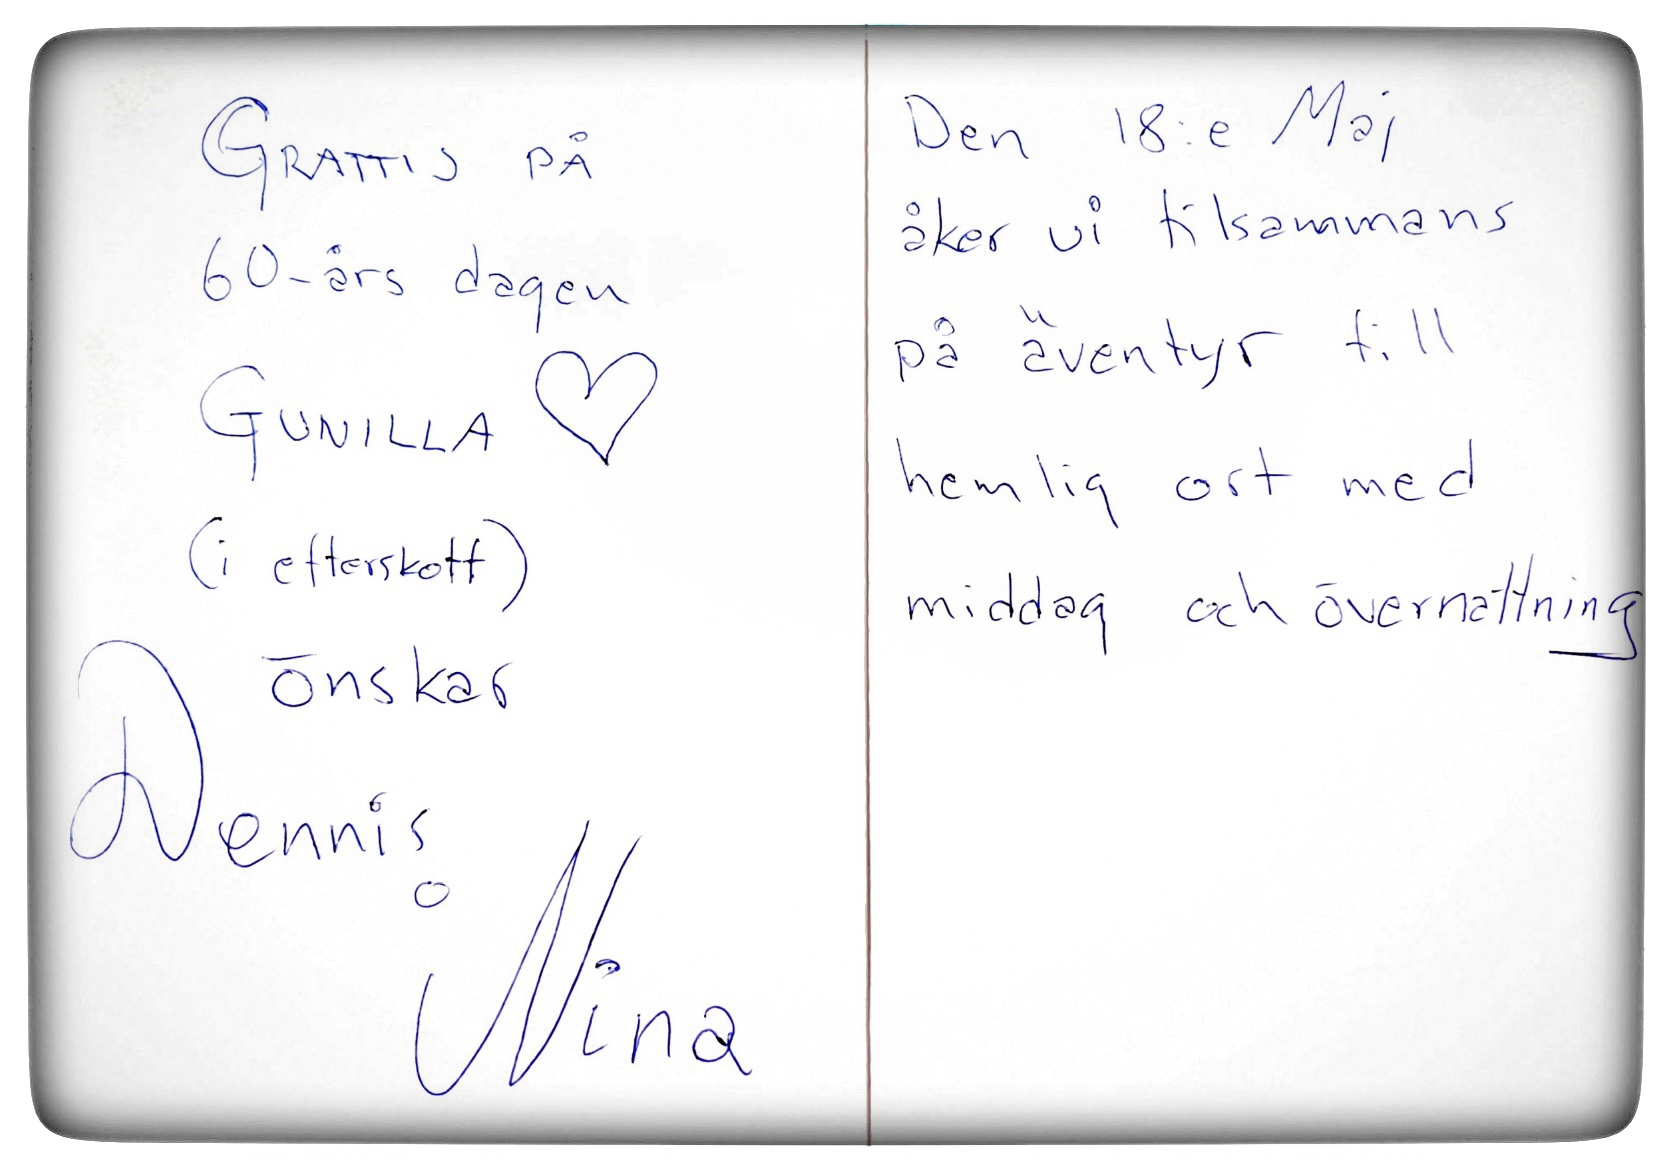 GRATTIS PÅ
60-års dagen
GUNILLA ♡
(i efterskott)
önskar
Dennis
o
Nina
Den 18:e Maj
åker vi tilsammans
på äventyr till
hemlig ort med
middag och övernattning